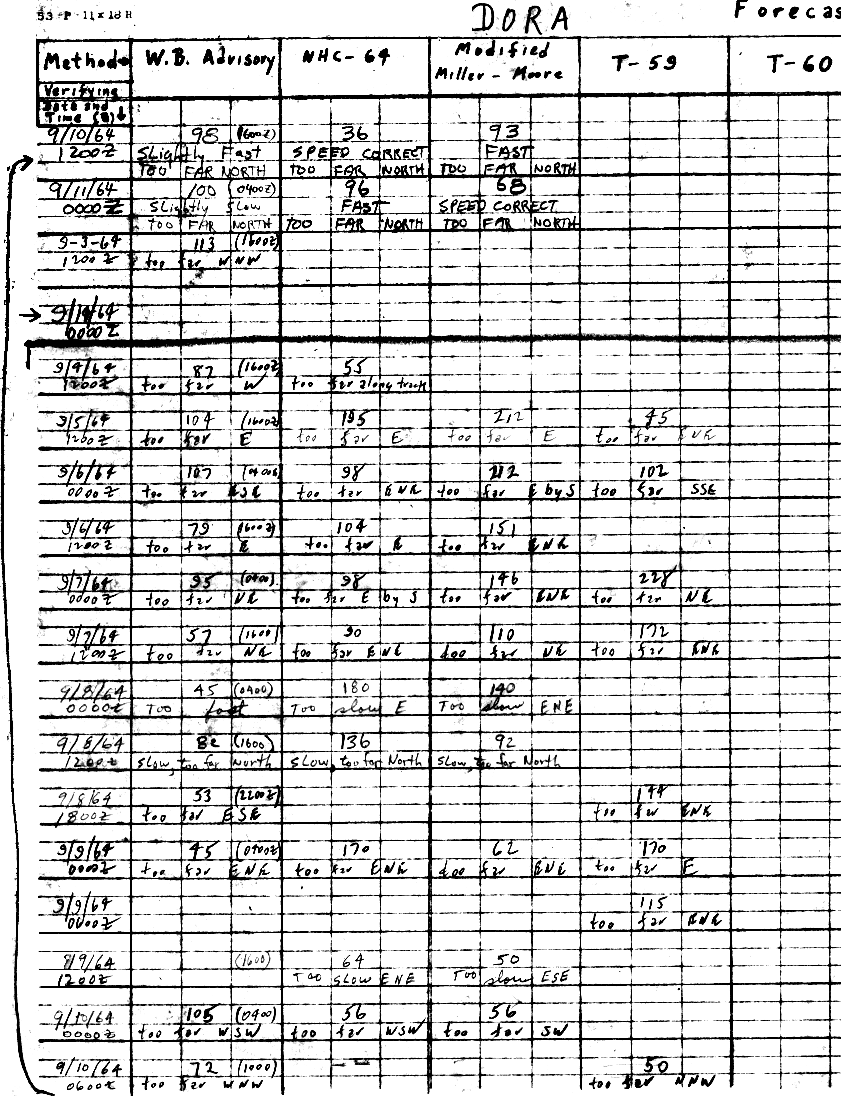 DORA Forecas
Method W.B. Advisory NHC-64 Modified Miller-Moore T-59 T-60
Verifying
Date and
Time (Z)
9/10/64 98 (1600Z) 36 93
1200Z Slightly Fast SPEED CORRECT FAST
TOO FAR NORTH TOO FAR NORTH TOO FAR NORTH
9/11/64 100 (0400Z) 96 68
0000Z Slightly Slow FAST SPEED CORRECT
TOO FAR NORTH TOO FAR NORTH TOO FAR NORTH
9-3-64 113 (1600Z)
1200Z too far WNW
0000Z
9/4/64 87 (1600Z) 55
1200Z too far W too far along track
9/5/64 104 (1600Z) 195 212 45
1200Z too far E too far E too far E too far ENE
9/6/64 107 98 212 102
0000Z too far ESE too far ENE too far E by S too far SSE
9/6/64 79 (1600Z) 104 151
1200Z too far E too far E too far ENE
9/7/64 95 (0400) 98 146 228
0000Z too far NE too far E by S too far ENE too far NE
9/7/64 57 (1600) 90 110 172
1200Z too far NE too far ENE too far NE too far ENE
9/8/64 45 (0400) 180 140
0000Z TOO fast TOO slow E TOO slow ENE
9/8/64 82 (1600) 136 92
1200Z Slow, too far North Slow, too far North Slow, too far North
9/8/64 53 (2200Z) 144
1800Z too far ESE too far ENE
9/9/64 45 (0400Z) 170 62 170
0000Z too far ENE too far ENE too far ENE too far E
9/9/64 115
too far ENE
8/9/64 (1600) 64 50
1200Z Too slow ENE Too slow ESE
9/10/64 105 (0400) 56 56
0000Z too far WSW too far WSW too far SW
9/10/64 72 50
0600Z too far WNW too far NNW